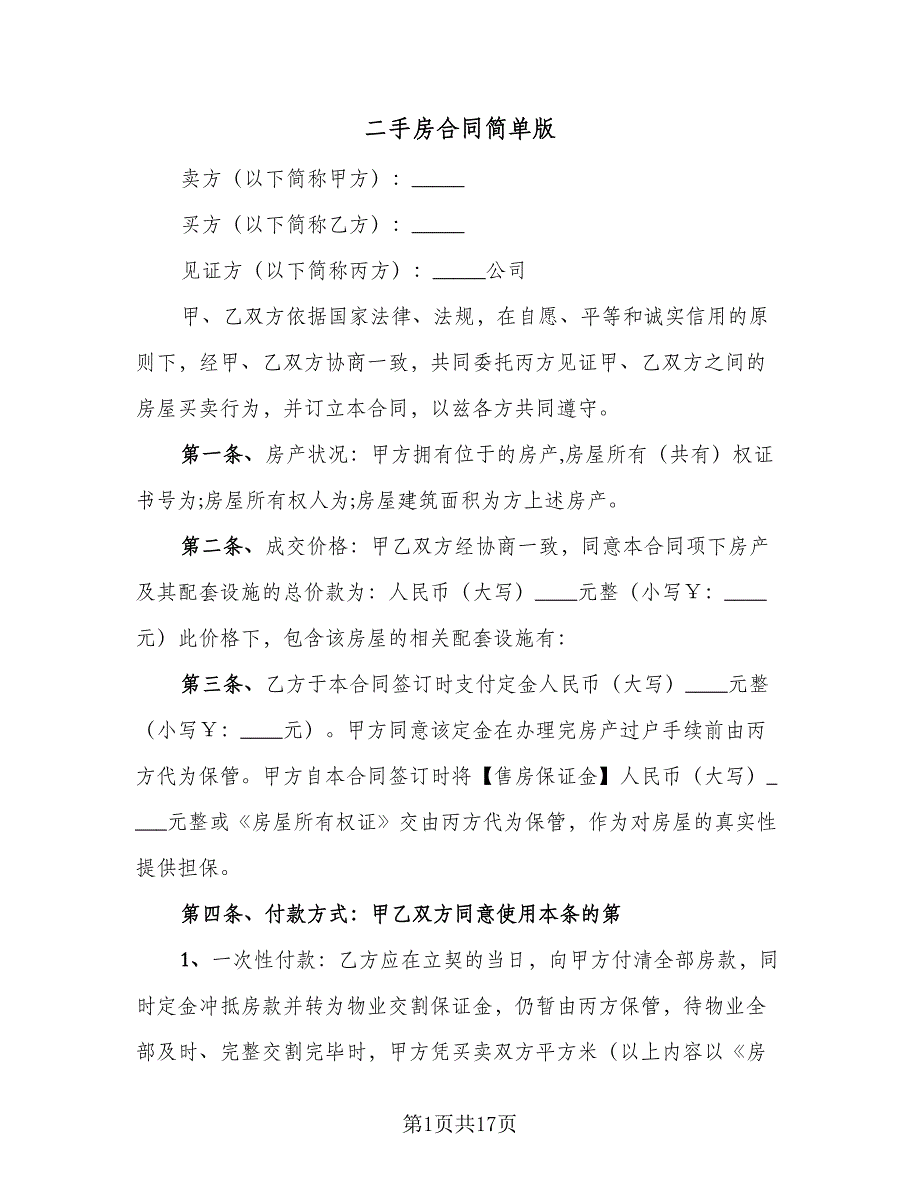 二手房合同简单版
卖方（以下简称甲方）：_____
买方（以下简称乙方）：_____
见证方（以下简称丙方）：_____公司
甲、乙双方依据国家法律、法规，在自愿、平等和诚实信用的原
则下，经甲、乙双方协商一致，共同委托丙方见证甲、乙双方之间的
房屋买卖行为，并订立本合同，以兹各方共同遵守。
第一条、房产状况：甲方拥有位于的房产,房屋所有（共有）权证
书号为;房屋所有权人为;房屋建筑面积为方上述房产。
第二条、成交价格：甲乙双方经协商一致，同意本合同项下房产
及其配套设施的总价款为：人民币（大写）____元整（小写￥：____
元）此价格下，包含该房屋的相关配套设施有：
第三条、乙方于本合同签订时支付定金人民币（大写）____元整
（小写￥：____元）。甲方同意该定金在办理完房产过户手续前由丙
方代为保管。甲方自本合同签订时将【售房保证金】人民币（大写）_
___元整或《房屋所有权证》交由丙方代为保管，作为对房屋的真实性
提供担保。
第四条、付款方式：甲乙双方同意使用本条的第
1、一次性付款：乙方应在立契的当日，向甲方付清全部房款，同
时定金冲抵房款并转为物业交割保证金，仍暂由丙方保管，待物业全
部及时、完整交割完毕时，甲方凭买卖双方平方米（以上内容以《房
第1页共17页